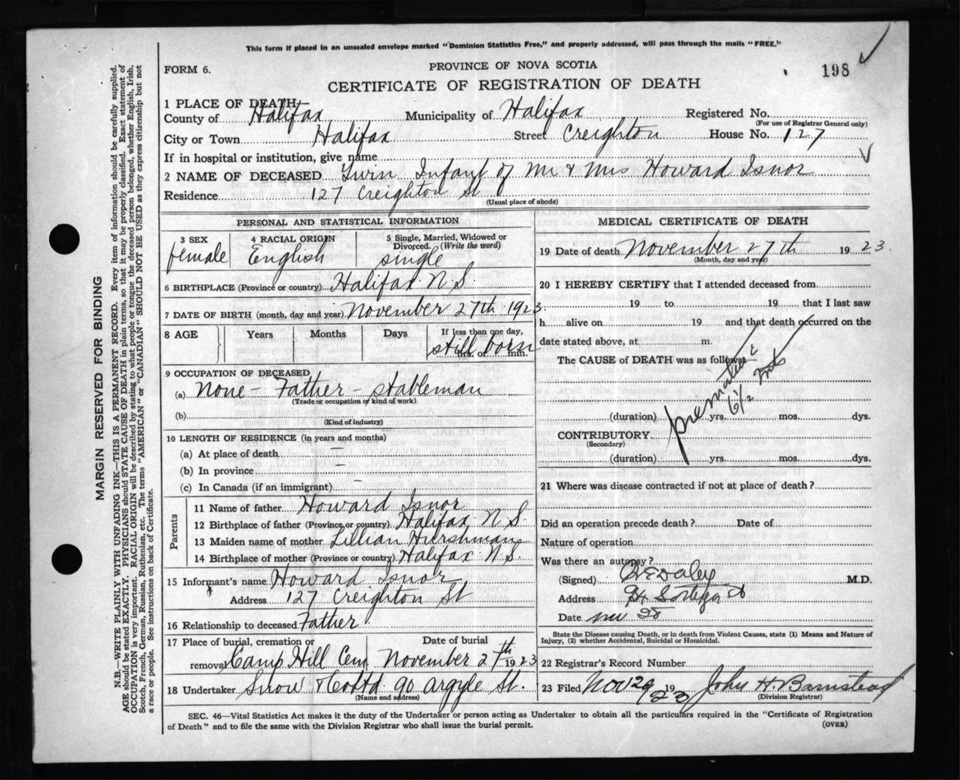 This form if placed in an unsealed envelope marked "Dominion Statistics Free," and properly addressed, will pass through the mails "FREE."
FORM 6.
PROVINCE OF NOVA SCOTIA
198
CERTIFICATE OF REGISTRATION OF DEATH
1 PLACE OF DEATH
County of Halifax Municipality of Halifax Registered No.
(For use of Registrar General only)
City or Town Halifax Street Creighton House No. 127
If in hospital or institution, give name
2 NAME OF DECEASED Twin Infant of Mr & Mrs Howard Isnor
Residence 127 Creighton St
(Usual place of abode)
PERSONAL AND STATISTICAL INFORMATION
3 SEX female
4 RACIAL ORIGIN English
5 Single, Married, Widowed or Divorced. (Write the word) single
6 BIRTHPLACE (Province or country) Halifax N.S.
7 DATE OF BIRTH (month, day and year) November 27th 1923
8 AGE Years Months Days If less than one day, hrs. or min.
still born
9 OCCUPATION OF DECEASED
(a) None - Father - stableman
(Trade or occupation or kind of work)
(b)
(Kind of industry)
10 LENGTH OF RESIDENCE (in years and months)
(a) At place of death
(b) In province
(c) In Canada (if an immigrant)
Parents
11 Name of father Howard Isnor
12 Birthplace of father (Province or country) Halifax N.S.
13 Maiden name of mother Lillian
14 Birthplace of mother (Province or country) Halifax N.S.
15 Informant's name Howard Isnor
Address 127 Creighton St
16 Relationship to deceased Father
17 Place of burial, cremation or removal Camp Hill Cem
Date of burial November 27th 1923
18 Undertaker Snow & Co Ltd 90 Argyle St.
(Name and address)
MEDICAL CERTIFICATE OF DEATH
19 Date of death November 27th 1923.
(Month, day and year)
20 I HEREBY CERTIFY that I attended deceased from
19 to 19 that I last saw
h alive on 19 and that death occurred on
date stated above, at m.
The CAUSE of DEATH was as follows:
premature 6½ mts
(duration) yrs. mos. dys.
CONTRIBUTORY
(Secondary)
(duration) yrs. mos. dys.
21 Where was disease contracted if not at place of death?
Did an operation precede death? Date of
Nature of operation
Was there an autopsy?
(Signed) Daley M.D.
Address
Date
State the Disease causing Death, or in death from Violent Causes, state (1) Means and Nature of Injury, (2) whether Accidental, Suicidal or Homicidal.
22 Registrar's Record Number
23 Filed Nov 29 1923 John H. Barnstead
(Division Registrar)
SEC. 46—Vital Statistics Act makes it the duty of the Undertaker or person acting as Undertaker to obtain all the particulars required in the "Certificate of Registration
of Death" and to file the same with the Division Registrar who shall issue the burial permit.
(OVER)
MARGIN RESERVED FOR BINDING
N.B.—WRITE PLAINLY WITH UNFADING INK—THIS IS A PERMANENT RECORD. Every item of information should be carefully supplied.
AGE should be stated EXACTLY. PHYSICIANS should STATE CAUSE OF DEATH in plain terms, so that it may be properly classified. Exact statement of
OCCUPATION is very important. RACIAL ORIGIN will be described by stating to what people or tongue the deceased person belonged, whether English, Irish,
Scotch, French, German, Russian, Ruthenian, etc. The terms "AMERICAN" or "CANADIAN" SHOULD NOT BE USED as they express citizenship but not
a race or people. See instructions on back of Certificate.